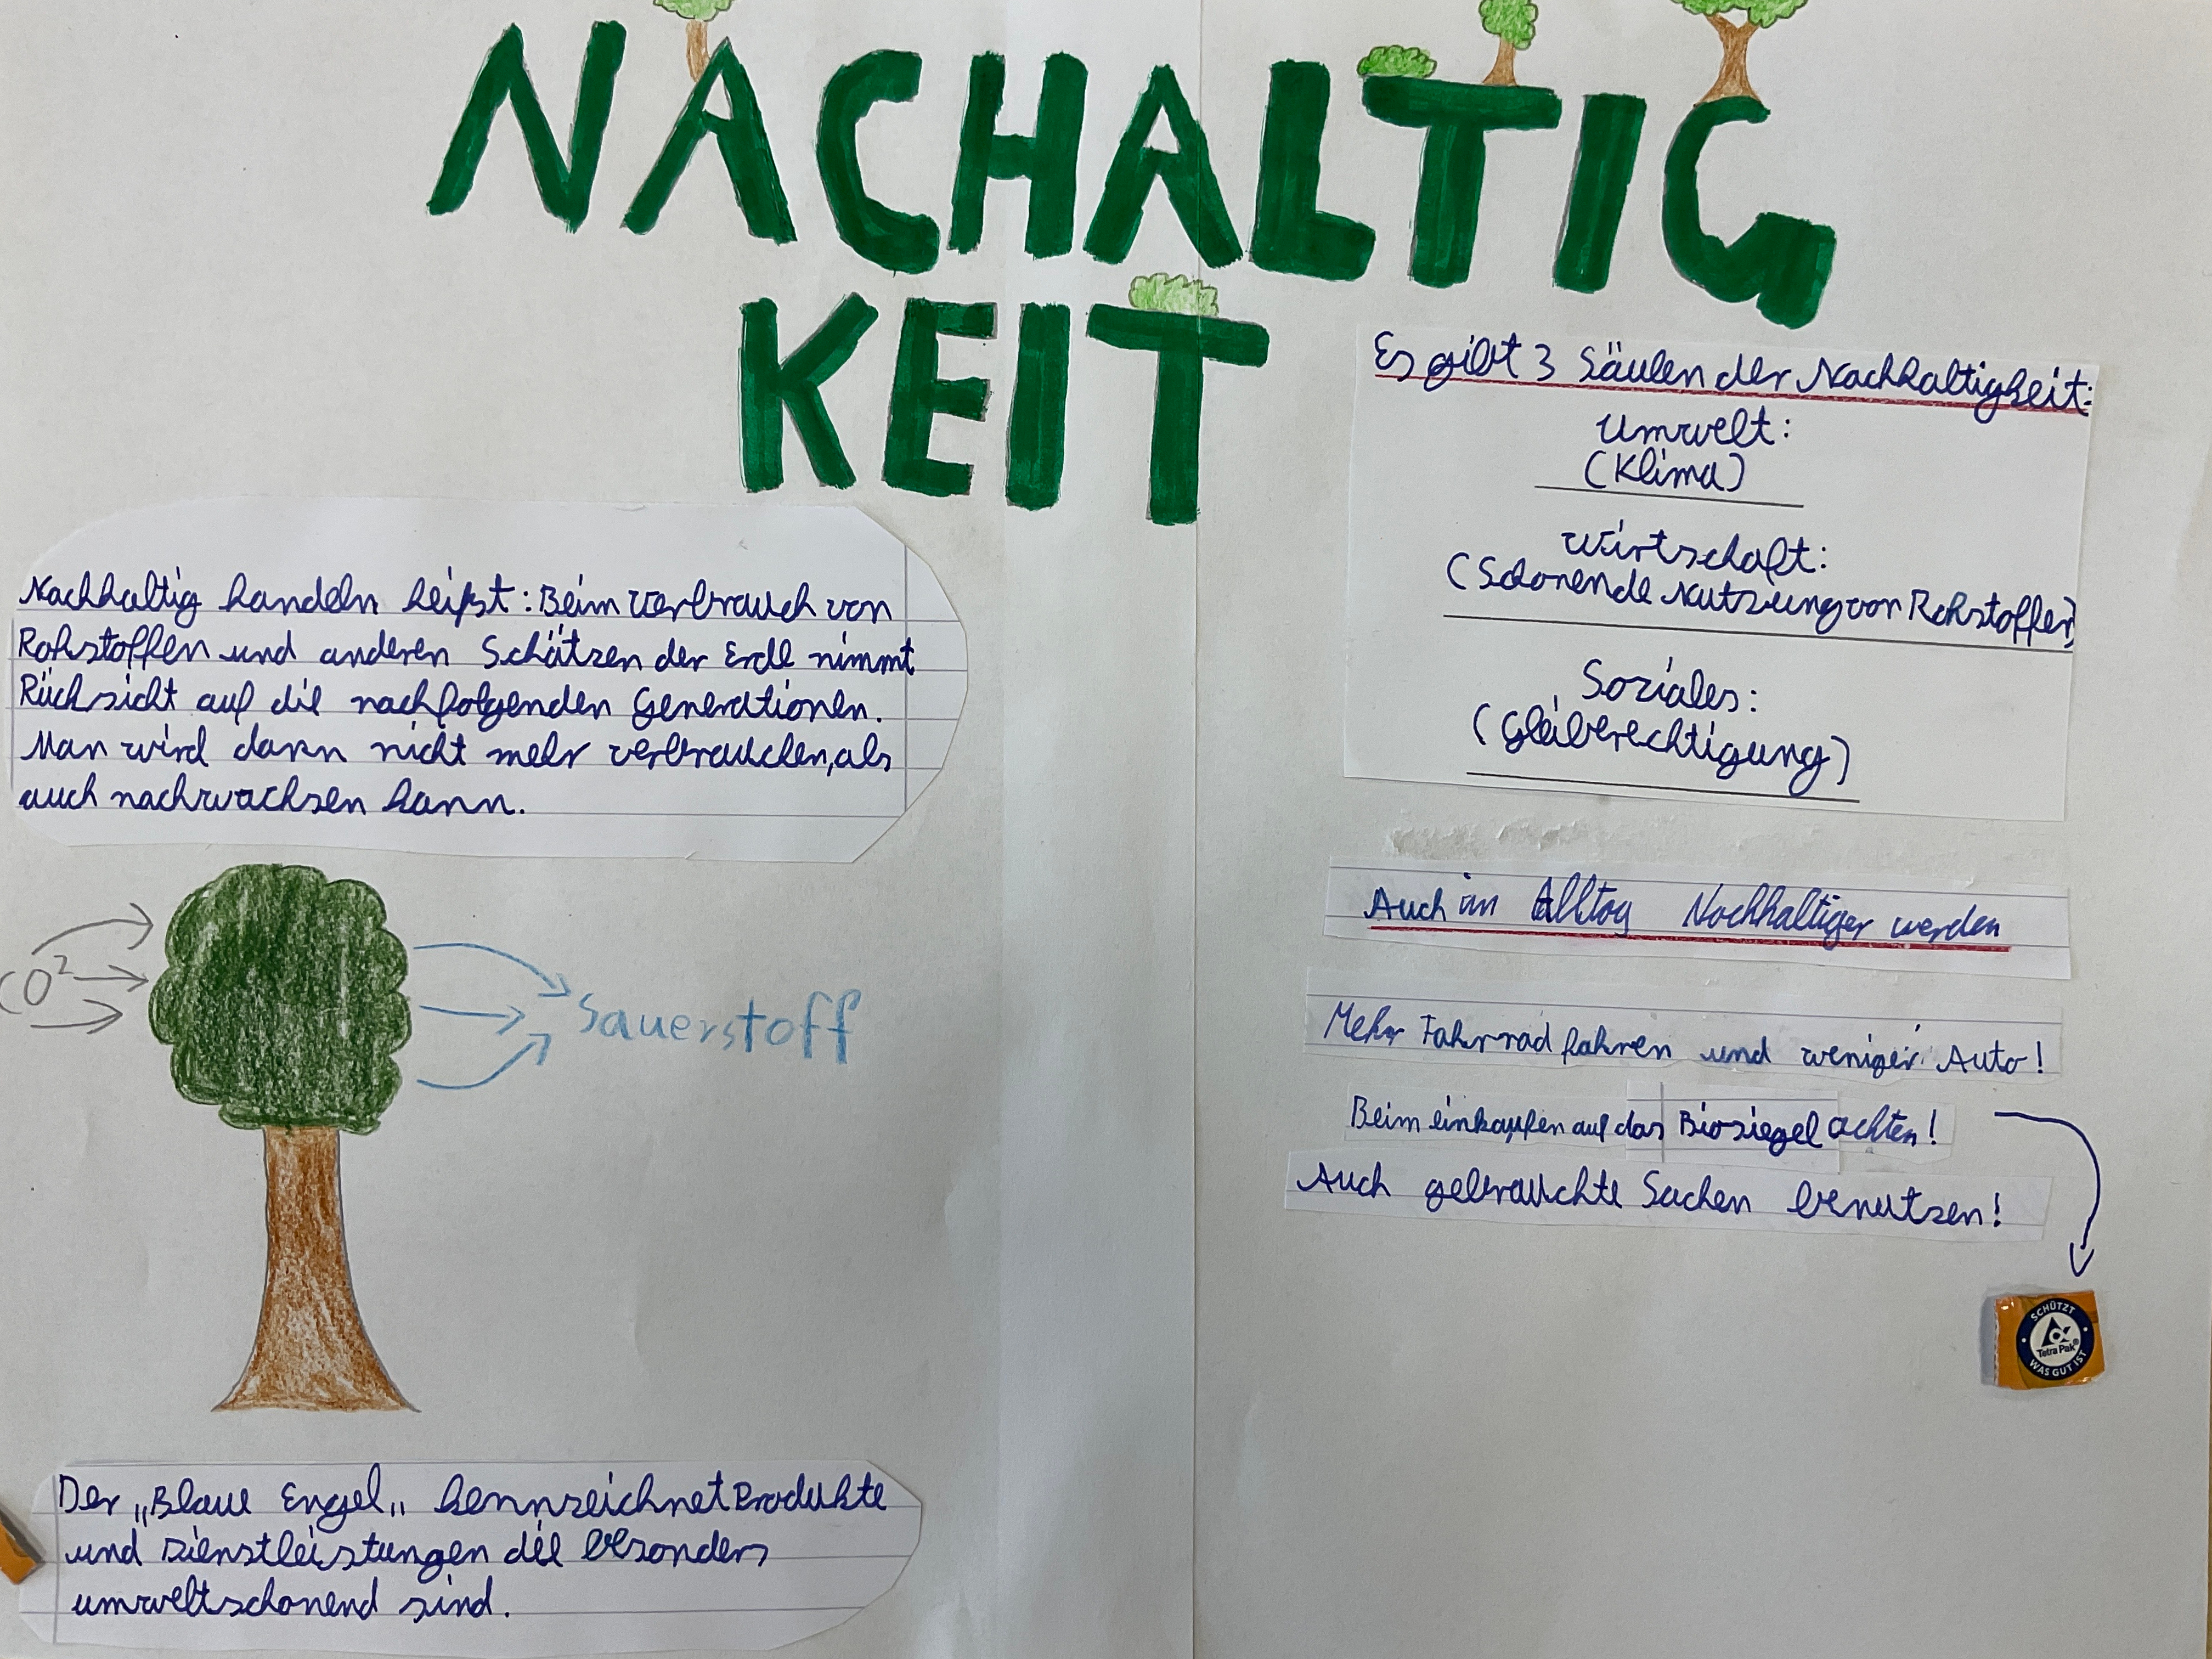 NACHALTIG
KEIT
Nachhaltig handeln heißt: Beim Verbrauch von
Rohstoffen und anderen Schätzen der Erde nimmt
Rücksicht auf die nachfolgenden Generationen.
Man wird dann nicht mehr verbrauchen, als
auch nachwachsen kann.
CO²
Sauerstoff
Der „Blaue Engel„ kennzeichnet Produkte
und Dienstleistungen die besonders
umweltschonend sind.
Es gibt 3 Säulen der Nachhaltigkeit:
Umwelt:
(Klima)
Wirtschaft:
(Schonende Nutzung von Rohstoffen)
Soziales:
(Gleiberechtigung)
Auch im Alltag Nachhaltiger werden
Mehr Fahrrad fahren und weniger Auto!
Beim einkaufen auf das Biosiegel achten!
Auch gebrauchte Sachen benutzen!
SCHÜTZT
Tetra Pak®
WAS GUT IST